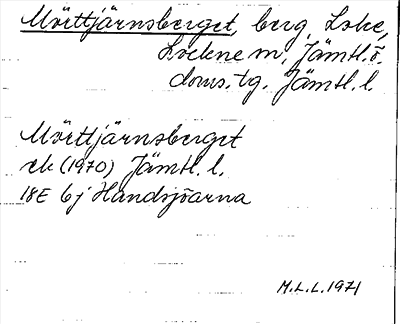 Mörttjärnsberget, berg, Loke,
Lockne sn, Jämtl. ö.
doms. tg. Jämtl. l.
Mörttjärnsberget
ek (1970) Jämtl. l.
18E 6j Handsjöarna
M.L.L. 1971